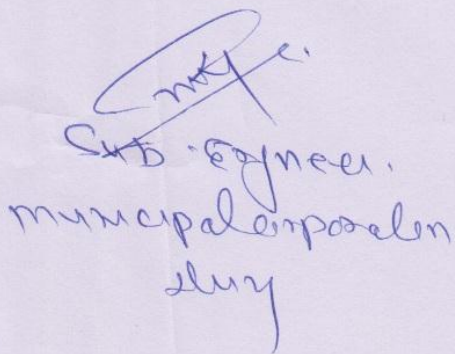 Sub. Engineer.
municipal corporation